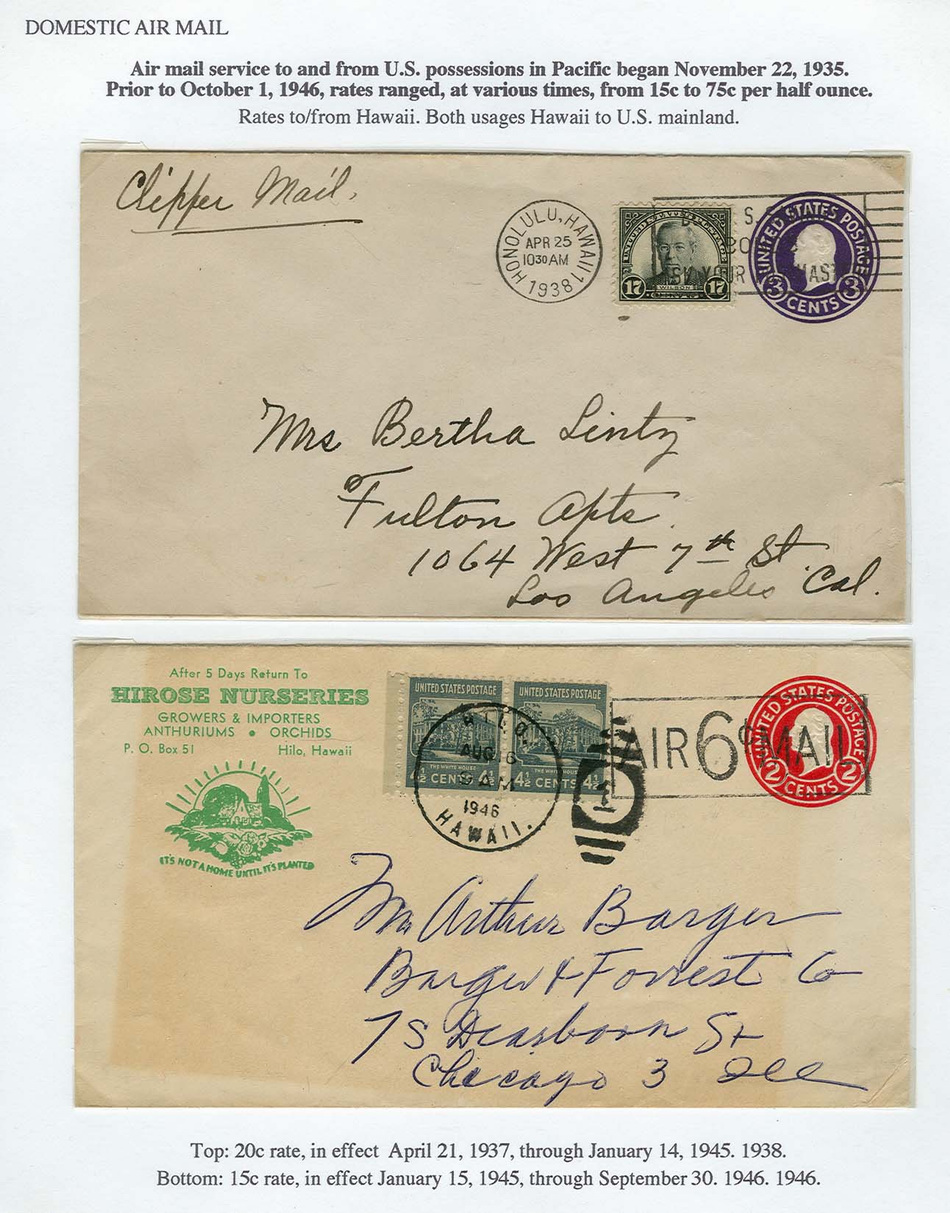 DOMESTIC AIR MAIL
Air mail service to and from U.S. possessions in Pacific began November 22, 1935.
Prior to October 1, 1946, rates ranged, at various times, from 15c to 75c per half ounce.
Rates to/from Hawaii. Both usages Hawaii to U.S. mainland.
Clipper Mail.
HONOLULU, HAWAII 1
APR 25
10 30 AM
1938
UNITED STATES POSTAGE
17 WILSON 17
UNITED STATES POSTAGE
3 CENTS 3
Mrs Bertha Lintz
Fulton Apts.
1064 West 7th St.
Los Angeles Cal.
After 5 Days Return To
HIROSE NURSERIES
GROWERS & IMPORTERS
ANTHURIUMS • ORCHIDS
P. O. Box 51 Hilo, Hawaii
IT'S NOT A HOME UNTIL IT'S PLANTED
UNITED STATES POSTAGE UNITED STATES POSTAGE
THE WHITE HOUSE THE WHITE HOUSE
½ CENTS 4½ 4½ CENTS 4½
HILO,
AUG 8
1946
HAWAII.
AIR 6¢ MAIL
UNITED STATES POSTAGE
2 CENTS 2
Mr Arthur Barger
Barger & Forrest Co
7 S Dearborn St
Chicago 3 Ill
Top: 20c rate, in effect April 21, 1937, through January 14, 1945. 1938.
Bottom: 15c rate, in effect January 15, 1945, through September 30. 1946. 1946.